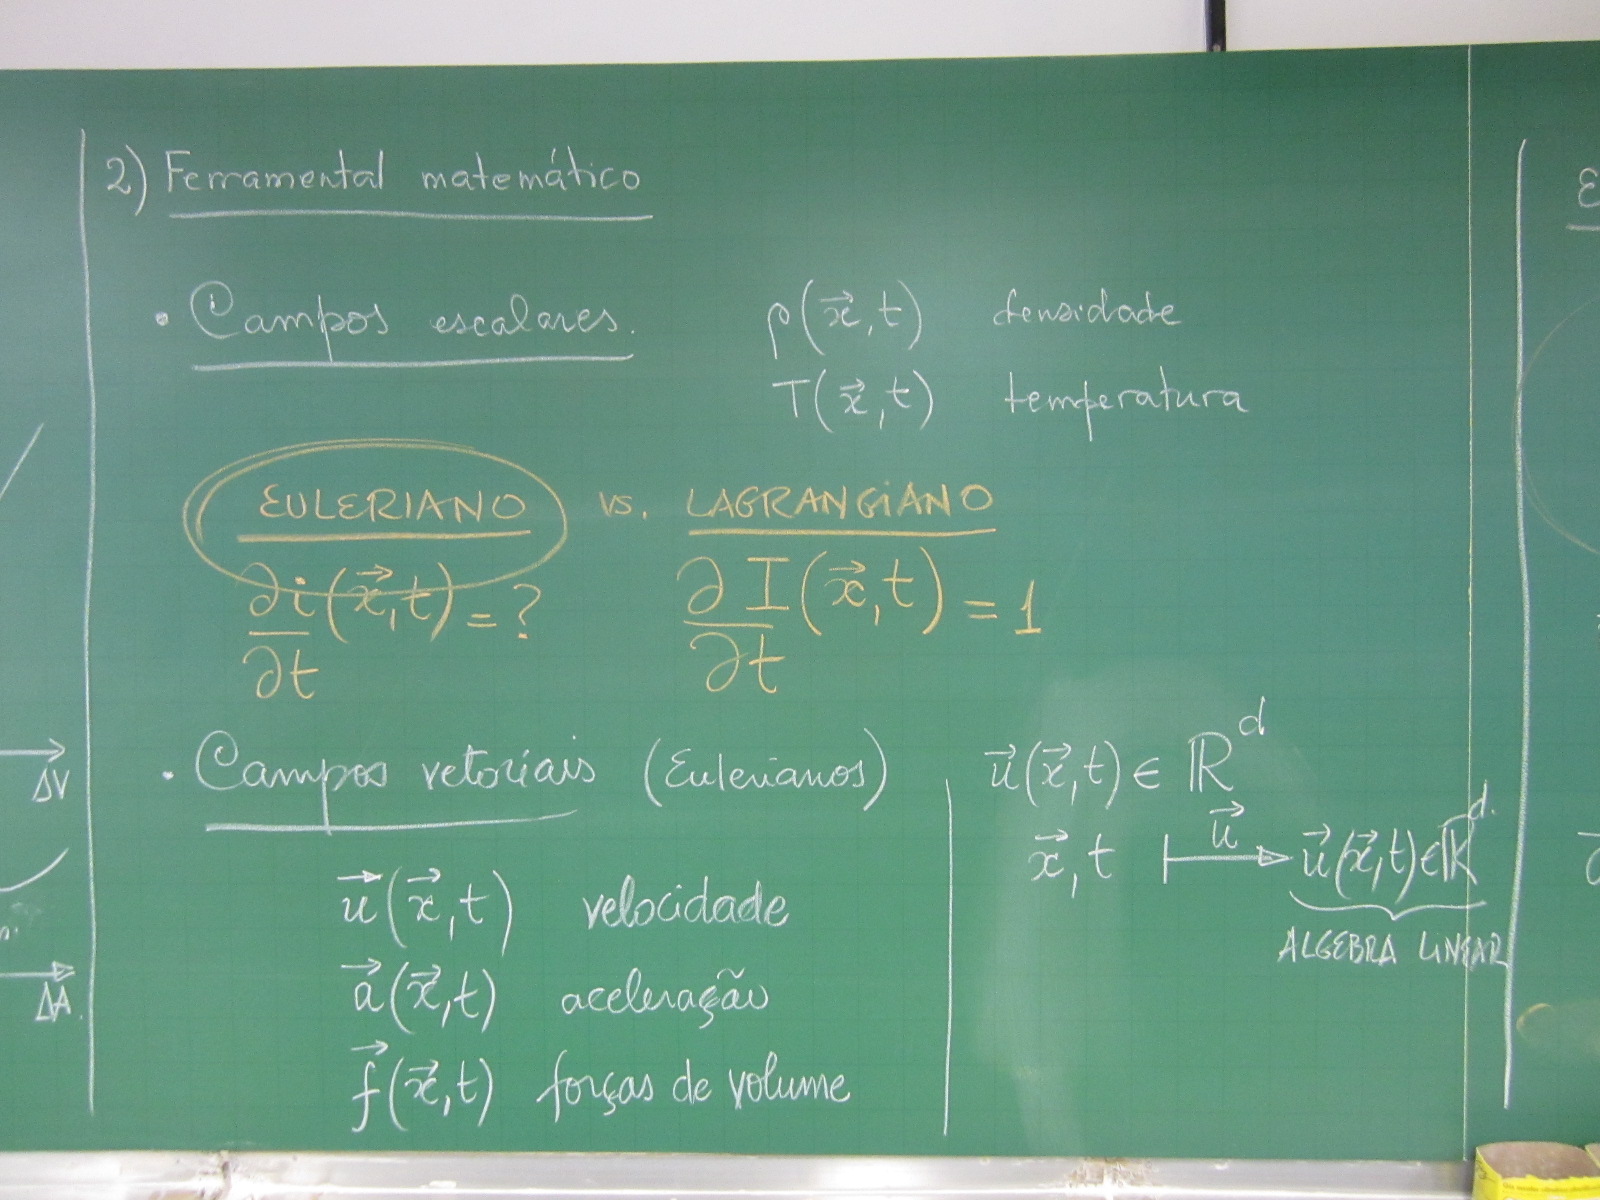 2) Ferramental matemático
• Campos escalares. ρ(x⃗,t) densidade
T(x⃗,t) temperatura
EULERIANO vs. LAGRANGIANO
∂i/∂t (x⃗,t) = ? ∂I/∂t (x⃗,t) = 1
• Campos vetoriais (Eulerianos)
u⃗(x⃗,t) velocidade
a⃗(x⃗,t) aceleração
f⃗(x⃗,t) forças de volume
u⃗(x⃗,t) ∈ ℝ^d
x⃗,t ⟼ u⃗ u⃗(x⃗,t) ∈ ℝ^d.
ÁLGEBRA LINEAR
ΔV
ΔA.